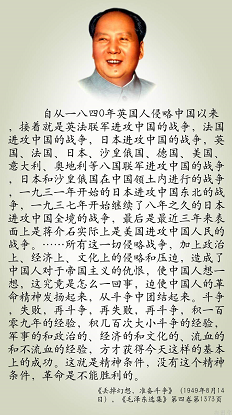 自从一八四0年英国人侵略中国以来
，接着就是英法联军进攻中国的战争，法国
进攻中国的战争，日本进攻中国的战争，英
国、法国、日本、沙皇俄国、德国、美国、
意大利、奥地利等八国联军进攻中国的战争
，日本和沙皇俄国在中国领土内进行的战争
，一九三一年开始的日本进攻中国东北的战
争，一九三七年开始继续了八年之久的日本
进攻中国全境的战争，最后是最近三年来表
面上是蒋介石实际上是美国进攻中国人民的
战争。……所有这一切侵略战争，加上政治
上、经济上、文化上的侵略和压迫，造成了
中国人对于帝国主义的仇恨，使中国人想一
想，这究竟是怎么一回事，迫使中国人的革
命精神发扬起来，从斗争中团结起来。斗争
，失败，再斗争，再失败，再斗争，积一百
零九年的经验，积几百次大小斗争的经验，
军事的和政治的、经济的和文化的、流血的
和不流血的经验，方才获得今天这样的基本
上的成功。这就是精神条件，没有这个精神
条件，革命是不能胜利的。
《丢掉幻想，准备斗争》（1949年8月14
日），《毛泽东选集》第四卷第1373页